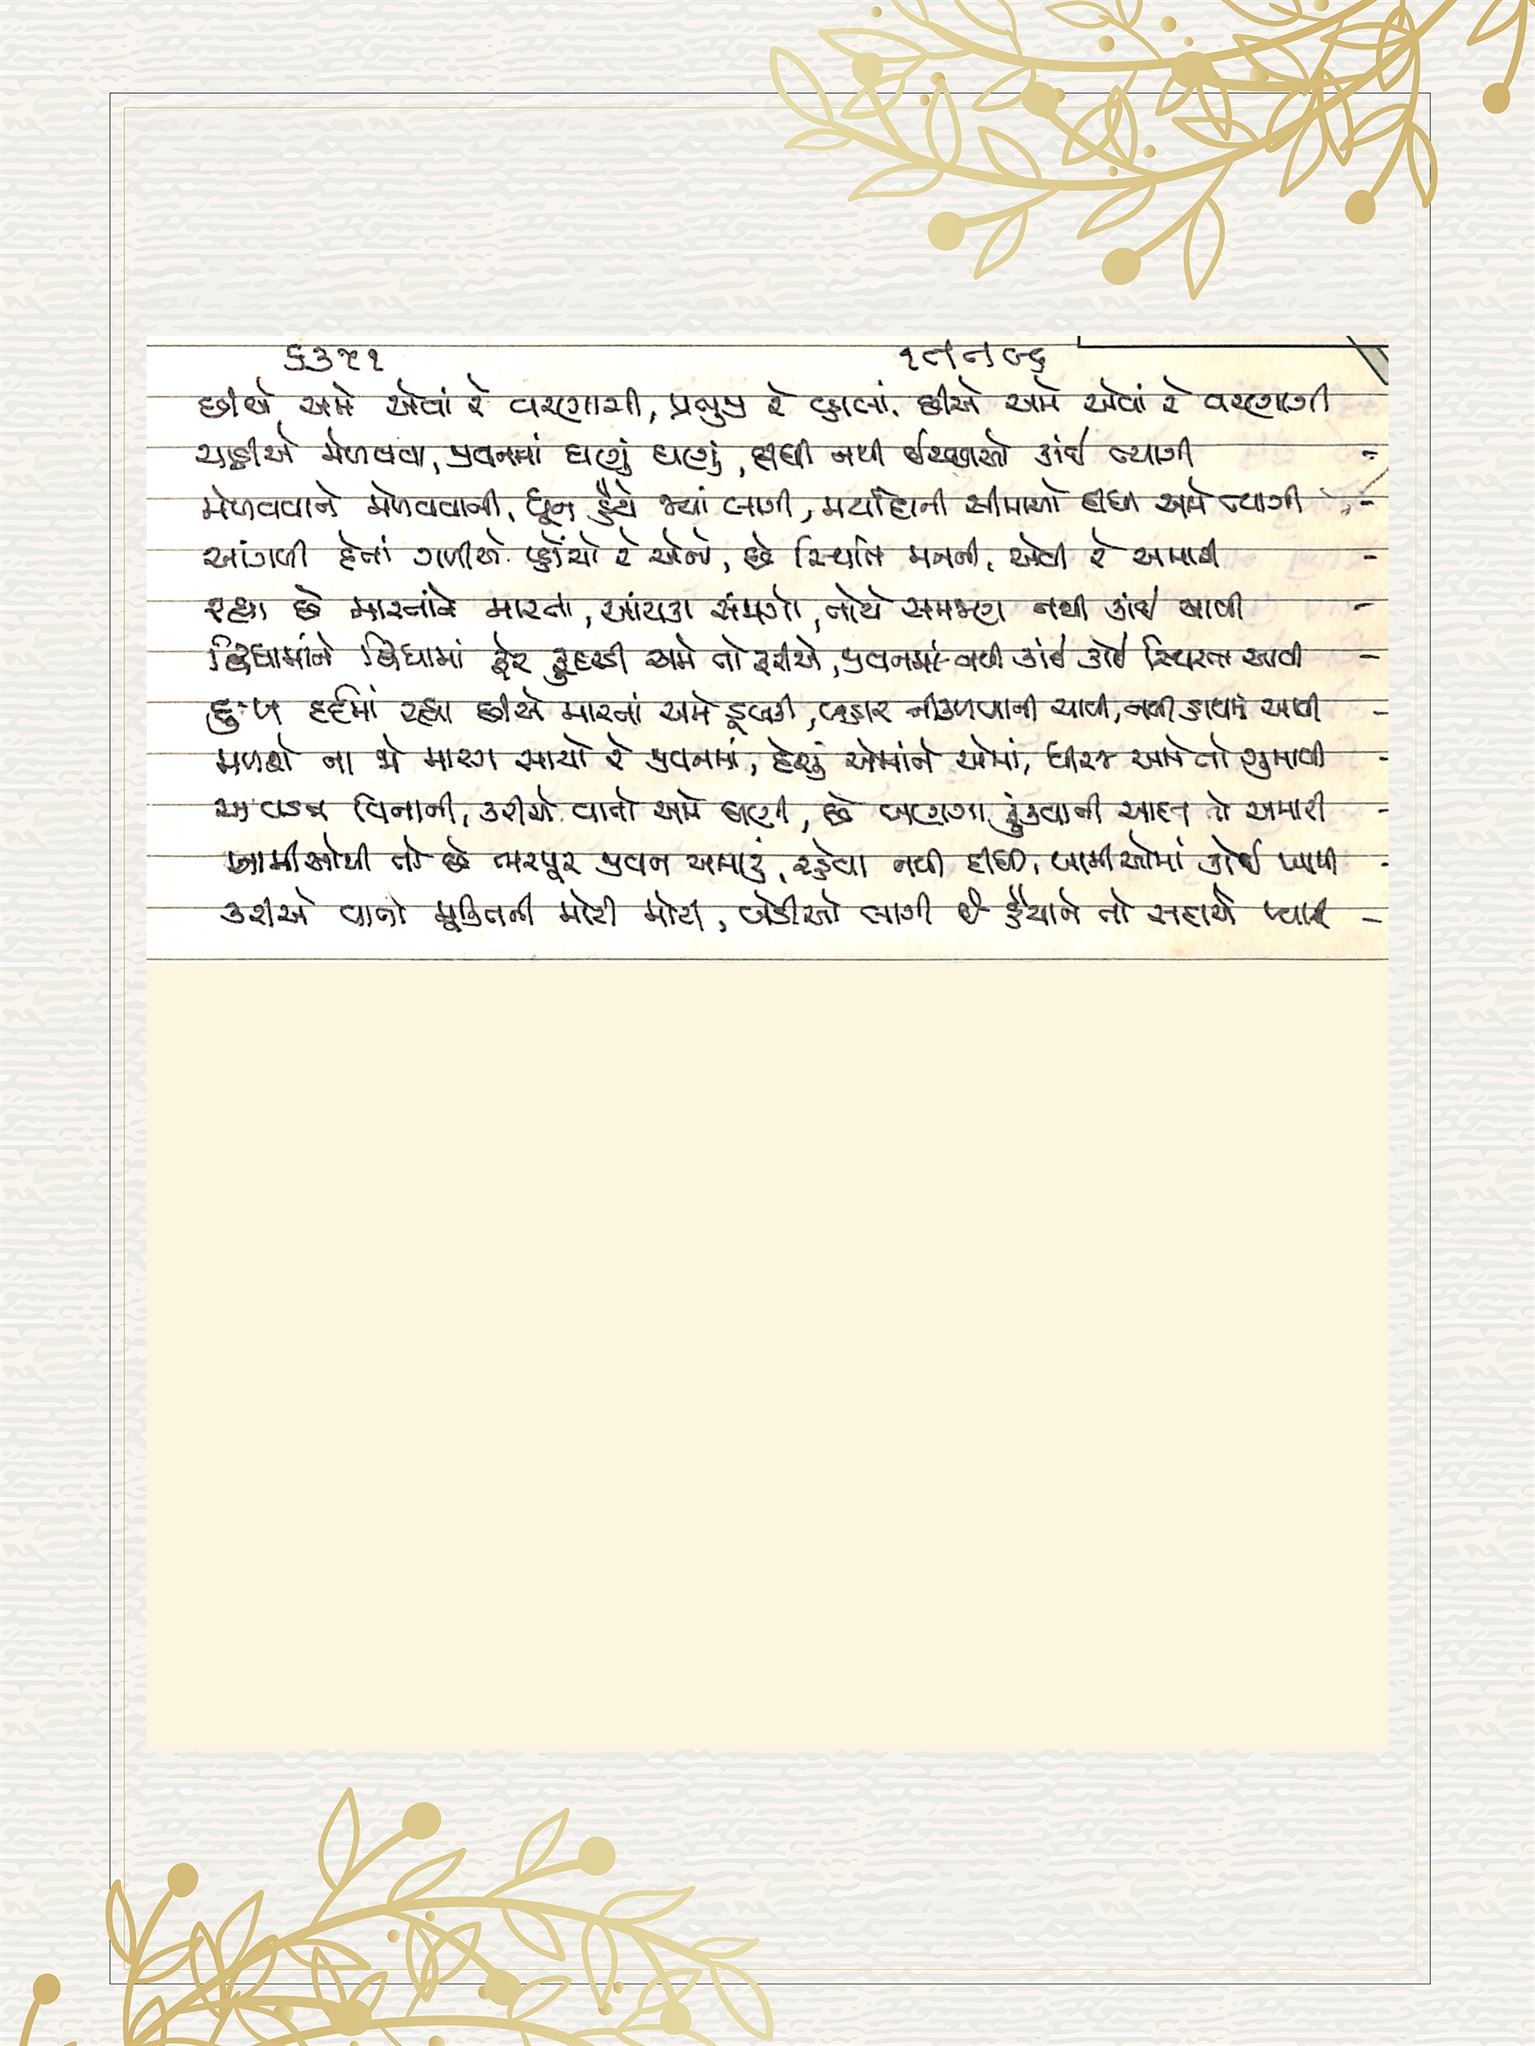 ૬૩૫૧
છીએ અમે એવાં રે વરણાગી, પ્રભુજી રે વ્હાલાં, છીએ અમે એવાં રે વરણાગી
ચાહીએ મેળવવા, જીવનમાં ઘણું ઘણું, દીધી નથી ઈચ્છાઓ કાંઈ ત્યાગી -
મેળવવાને મેળવવાની, ધૂન હૈયે જ્યાં લાગી, મર્યાદાની સીમાઓ દીધી અમે ત્યાગી -
આંગળી દેતાં ગળીએ પ્હોંચો રે એનો, છે સ્થિતિ મનની, એવી રે અમારી -
રહ્યા છે મારતાને મારતા, આંચકા સંજોગો, તોયે સમજણ નથી કાંઈ આવી -
દ્વિધામાંને દ્વિધામાં ફેર ફુદરડી અમે તો ફરીએ, જીવનમાં નથી કાંઈ કોઈ સ્થિરતા આવી -
દુઃખ દર્દમાં રહ્યા છીએ મારતાં અમે ડૂબકી, બહાર નીકળવાની ચાવી, નથી હાથમાં આવી -
મળશે ના જો મારગ સાચો રે જીવનમાં, દેશું એમાંને એમાં, ધીરજ અમે તો ગુમાવી -
આવડત વિનાની, કરીએ વાતો અમે ઘણી, છે બણગા ફૂંકવાની આદત તો અમારી -
ખામીઓથી તો છે ભરપૂર જીવન અમારું, રહેવા નથી દીધી, ખામીઓમાં કોઈ ખામી -
કરીએ વાતો મુક્તિની મોટી મોટી, બેડીઓ લાગી છે હૈયાને તો સદાએ પ્યારી -